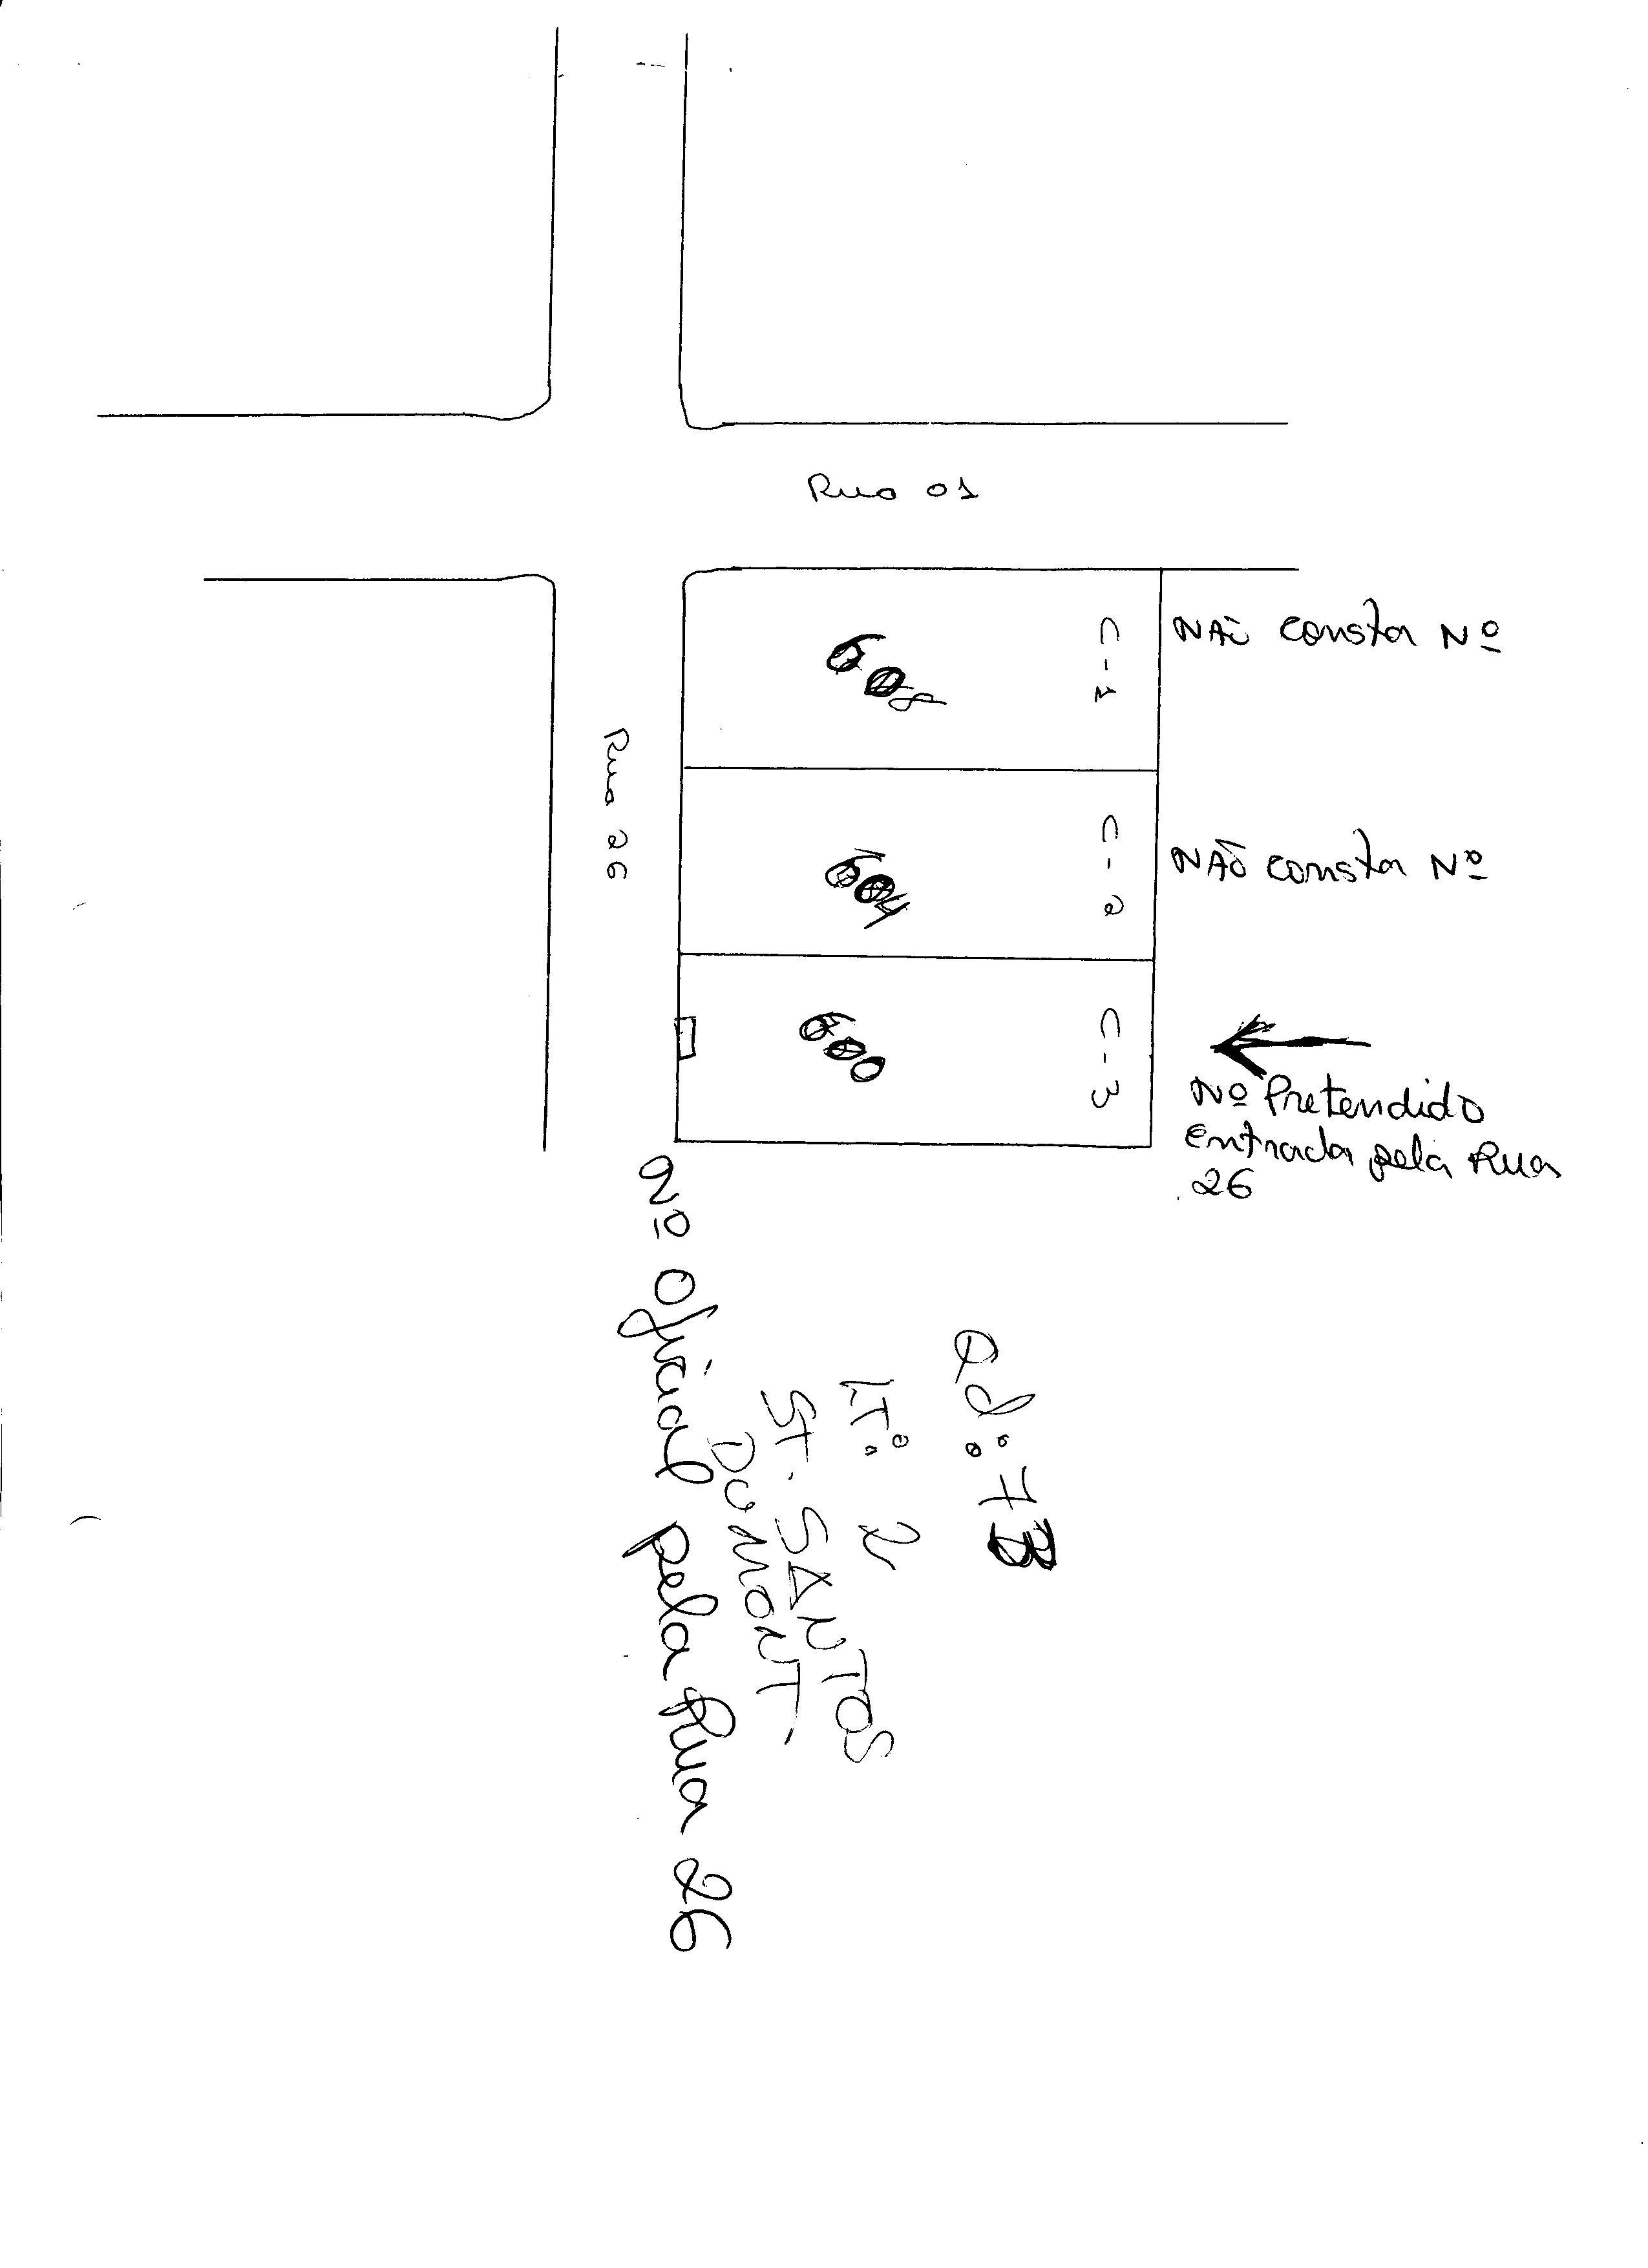 Rua 01
608
C-1
NÃO consta Nº
Rua 26
604
C-2
NÃO consta Nº
600
C-3
Nº Pretendido
Entrada pela Rua
26
Qd: 7B
LT: 2
ST. SANTOS
DUMONT
Nº Oficial pela Rua 26